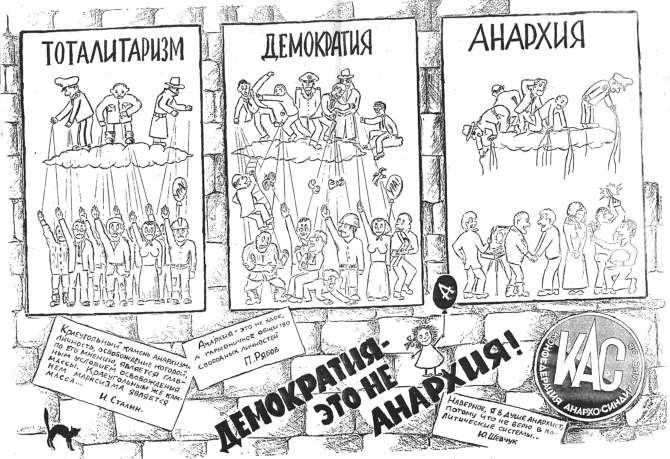 ТОТАЛИТАРИЗМ
ДЕМОКРАТИЯ
АНАРХИЯ
КРАЕУГОЛЬНЫЙ КАМЕНЬ АНАРХИЗМА -
ЛИЧНОСТЬ, ОСВОБОЖДЕНИЕ КОТОРОЙ,
ПО ЕГО МНЕНИЮ, ЯВЛЯЕТСЯ ГЛАВ-
НЫМ УСЛОВИЕМ ОСВОБОЖДЕНИЯ
МАССЫ. КРАЕУГОЛЬНЫМ ЖЕ КАМ-
НЕМ МАРКСИЗМА ЯВЛЯЕТСЯ
МАССА...
И. СТАЛИН.
АНАРХИЯ - ЭТО НЕ ХАОС,
А ГАРМОНИЧНОЕ ОБЩЕСТВО
СВОБОДНЫХ ЛИЧНОСТЕЙ
П. РЯБОВ
ДЕМОКРАТИЯ-
ЭТО НЕ
АНАРХИЯ!
КАС
КОНФЕДЕРАЦИЯ АНАРХО-СИНДИКАЛИСТОВ
НАВЕРНОЕ, Я В ДУШЕ АНАРХИСТ,
ПОТОМУ ЧТО НЕ ВЕРЮ В ПО-
ЛИТИЧЕСКИЕ СИСТЕМЫ...
Ю. ШЕВЧУК